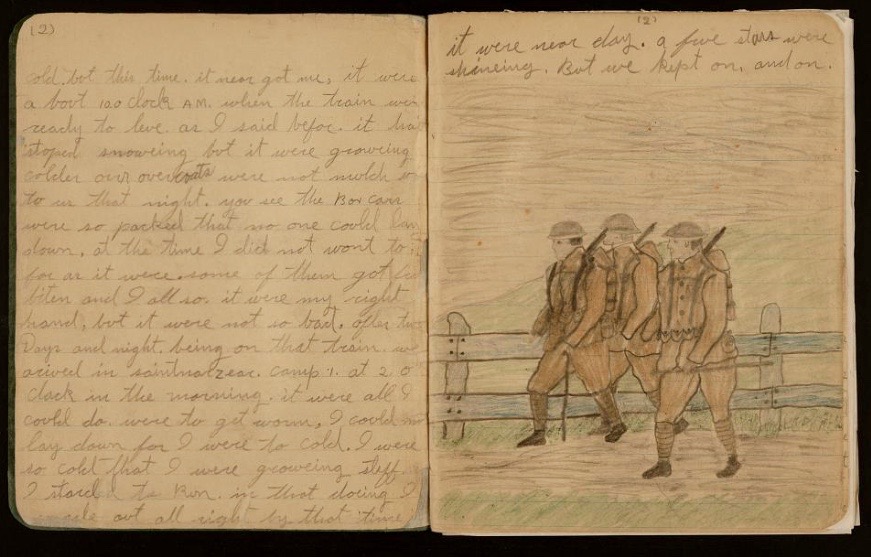 (2)
cold. but this time. it near got me, it were
a bout 100 clock AM. when the train
ready to leve. as I said befor. it
stoped snoweing but it were groweing
colder our overcoats were not mutch
to us that night. you see the Box cars
were so packed that no one could
down. at the time I did not wont to
for as it were. some of them got
biten and I all so. it were my right
hand, but it were not so bad. after
Days and night. being on that train.
arived in saintnalzear. camp 1. at 2 o
clock in the morning. it were all I
could do. were to get worm, I could
lay down for I were to cold. I were
so cold that I were groweing stiff
I started to Run. in that doeing I
out all right by that time
(2)
it were near day. a five stars were
shineing. But we kept on, and on.